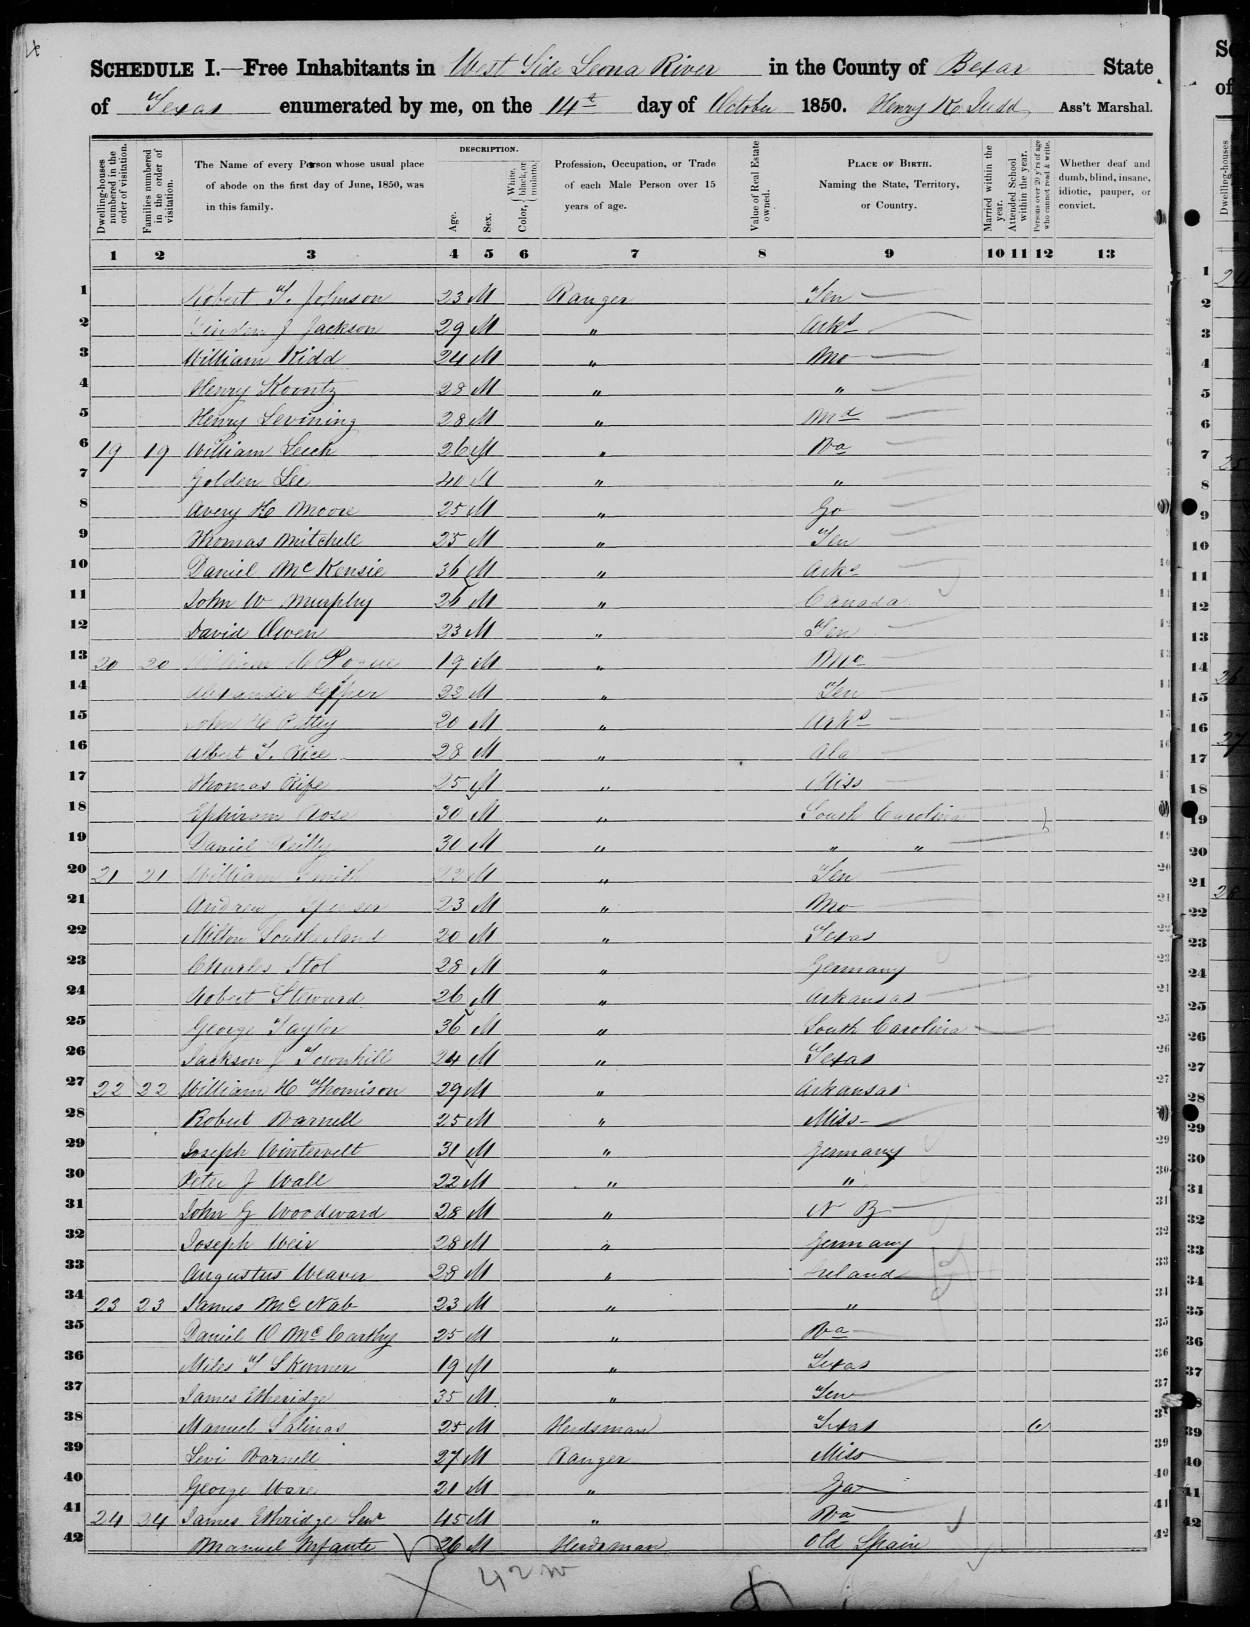 SCHEDULE I.—Free Inhabitants in West Side Leona River in the County of Bexar State
of Texas enumerated by me, on the 14th day of October 1850. Henry K Judd Ass't Marshal.
Dwelling-houses numbered in the order of visitation.
Families numbered in the order of visitation.
The Name of every Person whose usual place of abode on the first day of June, 1850, was in this family.
DESCRIPTION.
Age.
Sex.
Color, { White, black, or mulatto.
Profession, Occupation, or Trade of each Male Person over 15 years of age.
Value of Real Estate owned.
PLACE OF BIRTH. Naming the State, Territory, or Country.
Married within the year.
Attended School within the year.
Persons over 20 y'rs of age who cannot read & write.
Whether deaf and dumb, blind, insane, idiotic, pauper, or convict.
1 2 3 4 5 6 7 8 9 10 11 12 13
1 Robert T. Johnson 23 M Ranger Ten
2 J Jackson 29 M " Arks
3 William Kidd 24 M " Mo
4 Henry Koontz 28 M " "
5 Henry Levining 28 M " Md
6 19 19 William Leech 26 M " Va
7 Golden Lee 40 M " "
8 Avery H Moore 25 M " Go
9 Thomas Mitchell 25 M " Ten
10 Daniel McKensie 36 M " Arks
11 John W Murphy 26 M " Canada
12 David Owen 23 M " Ten
13 20 20 William Pogue 19 M " Mo
14 Alexander 22 M " Ten
15 John H Pettey 20 M " Arks
16 Albert T. Rice 28 M " Ala
17 Thomas Rife 25 M " Miss
18 Ephriam Rose 30 M " South Carolina
19 Daniel Reilly 30 M " " "
20 21 21 William Smith 23 M " Ten
21 Andrew Spenser 23 M " Mo
22 Milton Southerland 20 M " Texas
23 Charles Stol 28 M " Germany
24 Robert Steward 26 M " Arkansas
25 George Taylor 36 M " South Carolina
26 Jackson J Townhill 24 M " Texas
27 22 22 William H Thomison 29 M " Arkansas
28 Robert Barnell 25 M " Miss
29 Joseph Wintervelt 31 M " Germany
30 Peter J Wall 22 M " "
31 John G Woodward 28 M " N B
32 Joseph Weir 28 M " Germany
33 Augustus Weaver 28 M " Ireland
34 23 23 James McNab 23 M " "
35 Daniel O McCarthy 25 M " Va
36 Miles T Skenner 19 M " Texas
37 James Etheridge 35 M " Ten
38 Manuel Salinas 25 M Herdsman Texas
39 Levi Barnell 27 M Ranger Miss
40 George Ware 21 M " Ga
41 24 24 James Ethridge Senr 45 M " Va
42 Manuel Infante 26 M Herdsman Old Spain
42 m